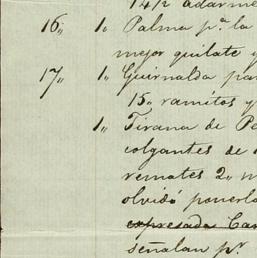 14½ adarme
16,, 1,, Palma p.ª la
mejor quilate y
17,, 1,, Guirnalda par
15,, ramitos y
1,, Tirana de Pe
colgantes de
remates 2,, m
olvidó ponerlo
expresada Car
señalan p.r